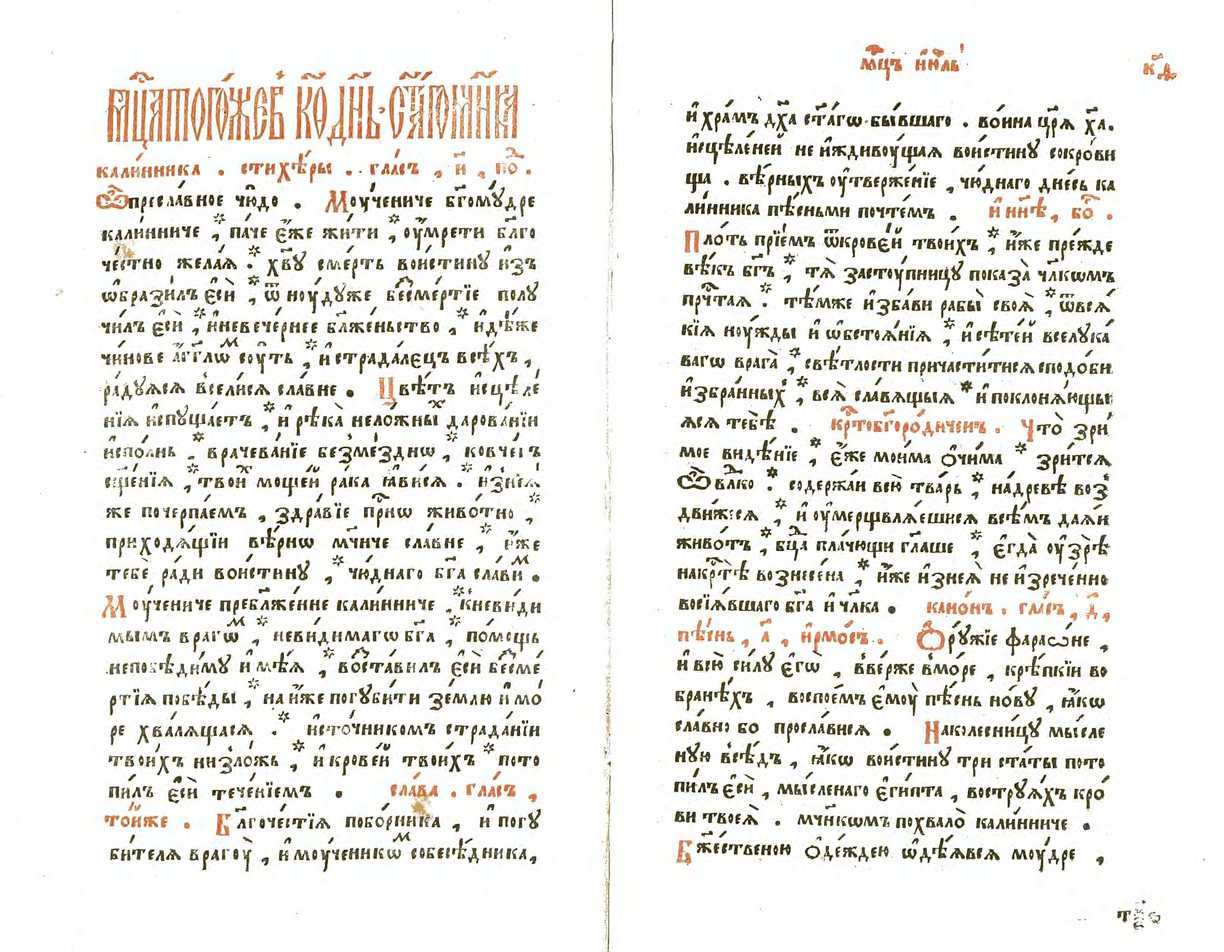 мц҃а тогѡ́же въ к҃ѳ дн҃ь. ст҃а́гѡ мч҃нка
кали́нника . стихѣ́ры . гла́съ , и҃ , по́д .
Ѽ пресла́вное чю́до . Моу́чениче бг҃ому́дре
кали́нниче ,* па́че є҆́же жи́ти ,* оу҆мре́ти бл҃го
че́стно жела́ѧ .* хв҃у сме́рть вои́стину и҆з
ѡ҆брази́лъ є҆сѝ ,* ѿ ноу́дуже безсме́ртїе полу
чи́лъ є҆сѝ ,* и҆ невече́рнее бл҃же́ньство ,* и҆дѣ́же
чи́нове а҆́гг҃лѡм соу́ть ,* и҆ страда́лєцъ всѣ́хъ ,
ра́дуѧсѧ всели́сѧ сла́вне . Цвѣ́тъ и҆сцѣле́
нїѧ и҆спуща́етъ ,* и҆ рѣка̀ нело́жных дарова́нїи
и҆спо́лнь .* врачева́нїе безме́зднѡ ,* ковче́гъ
сщ҃е́нїѧ ,* твои́х моще́й ра́ка ꙗ҆ви́сѧ .* и҆з неѧ́
же почерпа́емъ , здра́вїе при́снѡ живо́тно ,*
приходѧ́щїи вѣ́рнѡ мч҃ниче сла́вне ,* и҆́же
тебѐ ра́ди вои́стину ,* чю́днаго бг҃а сла́вим .
Моу́чениче пребл҃же́нне кали́нниче ,* к неви́ди
мымъ врагѡ́м ,* неви́димагѡ бг҃а ,* по́мощь
непобѣди́му и҆мѣ́ѧ ,* воста́вилъ є҆сѝ безсме́
ртїѧ побѣ́ды ,* на и҆̀же погуби́ти зе́млю и҆ мо́
ре хвалѧ́щасѧ .* и҆сто́чникомъ страда́нїи
твои́хъ низло́жь ,* и҆ крове́й твои́хъ * пото
пи́лъ є҆сѝ тече́нїемъ . сла́ва . гла́съ ,
то́йже . Бл҃гоче́стїѧ побо́рника , и҆ погу
би́телѧ врагоу́ , и҆ моу́ченикѡм собесѣ́дника ,
мц҃ъ і҆ю́ль к҃д
и҆ хра́мъ дх҃а ст҃а́гѡ бы́вшаго . во́ина цр҃ѧ̀ ха҃ .
и҆сцѣле́ней не и҆ждивоу́щаѧ вои́стину сокро́ви
ща . вѣ́рныхъ оу҆твержє́нїе , чю́днаго дне́сь ка
ли́нника пѣ́сньми почте́мъ . и҆ ны́нѣ , бо́ .
Пло́ть прїе́мъ ѿ крове́й твои́хъ ,* и҆́же пре́жде
вѣ́къ бг҃ъ ,* тѧ̀ засто́упницу показа̀ чл҃кѡмъ
пречт҃аѧ .* тѣ́мже и҆зба́ви рабы̀ своѧ̀ ,* ѿ всѧ́
кїѧ ноу́жды и҆ ѡ҆бстоѧ́нїѧ ,* и҆ сѣте́й вселука́
вагѡ врага̀ ,* свѣ́тлости причасти́тисѧ сподо́би
и҆збра́нных ,* всѧ̀ сла́вѧщыѧ * и҆ поклонѧ́ющы
ѧсѧ тебѣ̀ . кр҃тобг҃оро́диченъ . Что̀ зри́
мое видѣ́нїе ,* є҆́же мои́ма ѻ҆чи́ма * зри́тсѧ
Ѽ влⷣко .* содержа́и всю̀ тва́рь ,* на дре́вѣ воз
дви́жесѧ ,* и҆ оу҆мерщвлѧ́ешисѧ всѣ́мъ даѧ́и
живо́тъ ,* бц҃а пла́чющи гл҃аше ,* є҆гда̀ оу҆зрѣ̀
на кр҃тѣ̀ вознесе́на ,* и҆́же и҆з неѧ̀ неизрече́нно
возсїѧ́вшаго бг҃а и҆ чл҃ка . кано́нъ . гла́съ , д҃ ,
пѣ́снь , а҃ , і҆рмо́съ . Ѻ҆ру́жїе фараѡ́не ,
и҆ всю̀ си́лу є҆гѡ̀ , вве́рже в мо́ре , крѣ́пкїи во
бране́хъ , воспое́мъ є҆моу̀ пѣ́снь но́ву , ꙗ҆́кѡ
сла́вно бо просла́висѧ . На колесни́цу мы́сле
ную всѣ́дъ , ꙗ҆́кѡ вои́стину триста́ты пото
пи́лъ є҆сѝ , мы́сленаго є҆гі́пта , в стру́ѧхъ кро́
ви твоеѧ̀ . мч҃никѡмъ похвало̀ кали́нниче .
Бж҃е́ственою ѻ҆де́ждею ѡ҆дѣ́ѧвсѧ моу́дре ,